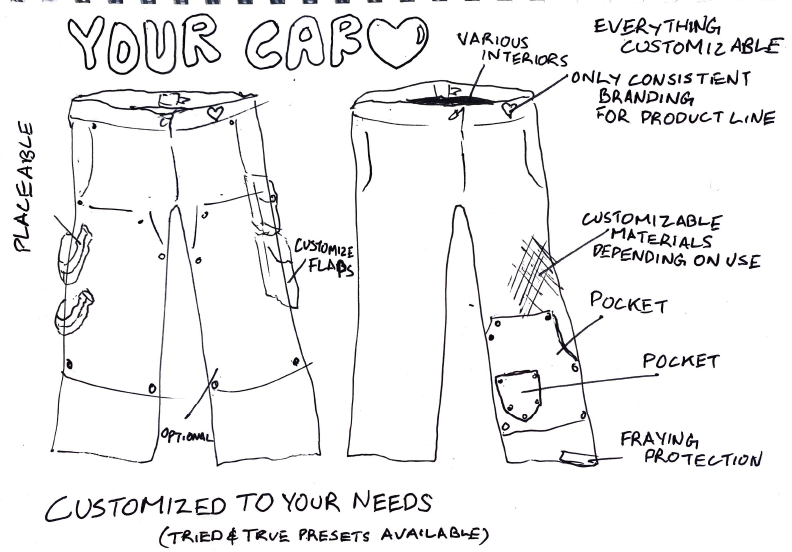 YOUR CAR♡
VARIOUS
INTERIORS
EVERYTHING
CUSTOMIZABLE
ONLY CONSISTIENT
BRANDING
FOR PRODUCT LINE
PLACEABLE
CUSTOMIZE
FLAPS
CUSTOMIZABLE
MATERIALS
DEPENDING ON USE
POCKET
POCKET
OPTIONAL
FRAYING
PROTECTION
CUSTOMIZED TO YOUR NEEDS
(TRIED & TRUE PRESETS AVAILABLE)